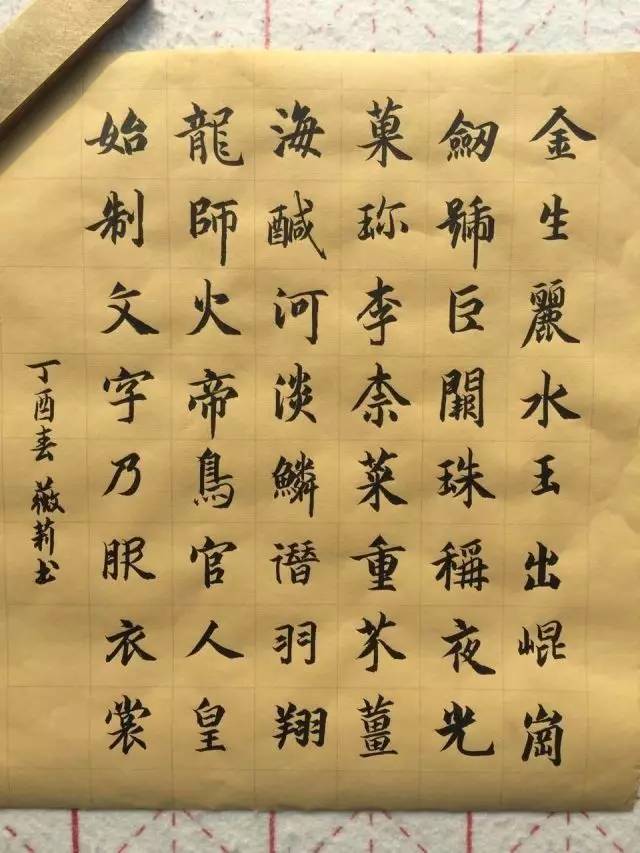 金生麗水玉出崐崗
劒號巨闕珠稱夜光
菓珎李柰菜重芥薑
海醎河淡鱗潛羽翔
龍師火帝鳥官人皇
始制文字乃服衣裳
丁酉春薇莉书